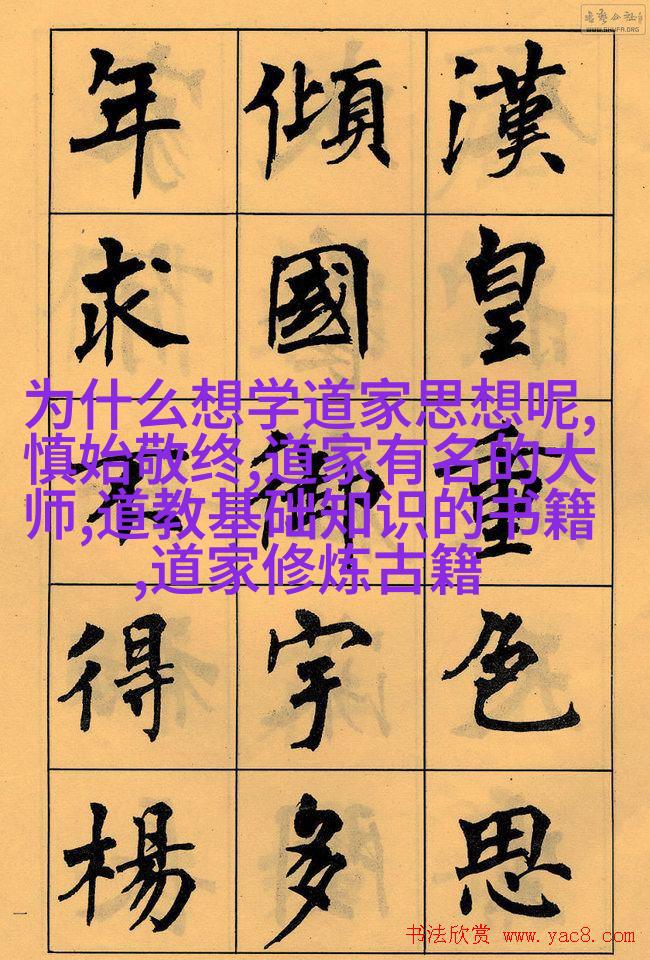 漢皇重色思
傾國御宇多
年求不得楊
为什么想学道家思想呢,
慎始敬终,道家有名的大
师,道教基础知识的书籍
,道家修炼古籍
一
书法欣赏 www.yac8.com
WWW.SHUFA.ORG